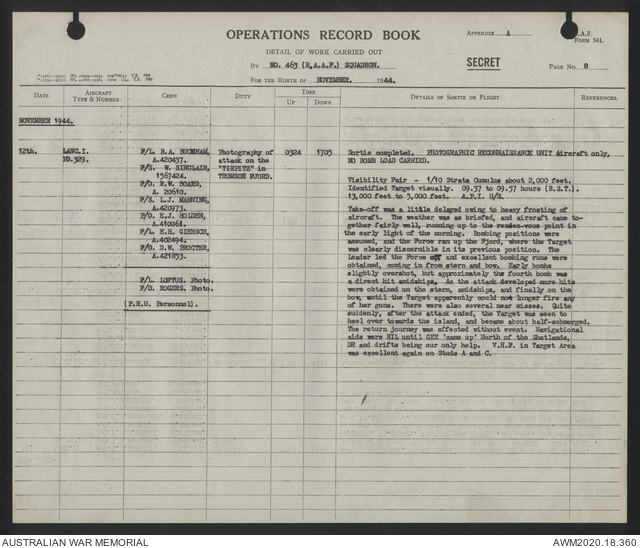 OPERATIONS RECORD BOOK
APPENDIX A
R.A.F.
FORM 541.
DETAIL OF WORK CARRIED OUT
BY NO. 463 (R.A.A.F.) SQUADRON.
SECRET
PAGE NO. 8
FOR THE MONTH OF NOVEMBER. 1944.
DATE
AIRCRAFT
TYPE & NUMBER
CREW
DUTY
TIME
UP
DOWN
DETAILS OF SORTIE OR FLIGHT
REFERENCES.
NOVEMBER 1944.
12th.
LANC.I.
HD.329.
F/L. B.A. BUCKHAM,
A.420437.
F/S. W. SINCLAIR,
1567424.
F/O. R.W. BOARD,
A. 20610.
F/S. L.J. MANNING,
A.420973.
F/O. E.J. HOLDEN,
A.410061.
F/L. E.H. GIERSCH,
A.402494.
F/O. D.W. PROCTER,
A.421853.
F/L. LOFTUS. Photo.
F/O. ROGERS. Photo.
(P.R.U. Personnel).
Photography of
attack on the
"TIRPITZ" in
TROMSON FJORD.
0324
1705
Sortie completed. PHOTOGRAPHIC RECONNAISSANCE UNIT Aircraft only,
NO BOMB LOAD CARRIED.
Visibility Fair - 1/10 Strata Cumulus about 2,000 feet.
Identified Target visually. 09.37 to 09.57 hours (B.S.T.).
13,000 feet to 5,000 feet. A.P.I. U/S.
Take-off was a little delayed owing to heavy frosting of
aircraft. The weather was as briefed, and aircraft came to-
gether fairly well, running up to the rendez-vous point in
the early light of the morning. Bombing positions were
assumed, and the Force ran up the Fjord, where the Target
was clearly discernible in its previous position. The
Leader led the Force off and excellent bombing runs were
obtained, coming in from stern and bow. Early bombs
slightly overshot, but approximately the fourth bomb was
a direct hit amidships. As the attack developed more hits
were obtained on the stern, amidships, and finally on the
bow, until the Target apparently could not longer fire any
of her guns. There were also several near misses. Quite
suddenly, after the attack ended, the Target was seen to
heel over towards the island, and became about half-submerged.
The return journey was affected without event. Navigational
aids were NIL until GEE 'came up' North of the Shetlands,
DR and drifts being our only help. V.H.F. in Target Area
was excellent again on Studs A and C.
AUSTRALIAN WAR MEMORIAL
AWM2020.18.360